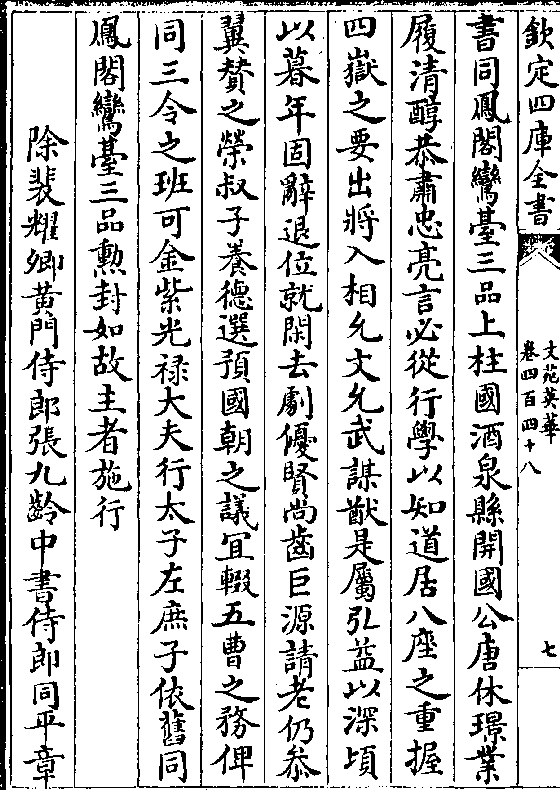 欽定四庫全書
文苑英華
卷四百四十八
七
書同鳳閣鸞臺三品上柱國酒泉縣開國公唐休璟業
履清醇恭肅忠亮言必從行學以知道居八座之重握
四嶽之要出將入相允文允武謀猷是屬引益以深頃
以暮年固辭退位就閑去劇優賢尚齒巨源請老仍叅
翼賛之榮叔子養德選預國朝之議冝輟五曹之務俾
同三令之班可金紫光禄大夫行太子左庶子依舊同
鳳閣鸞臺三品勲封如故主者施行
除裴耀卿黄門侍郎張九齡中書侍郎同平章